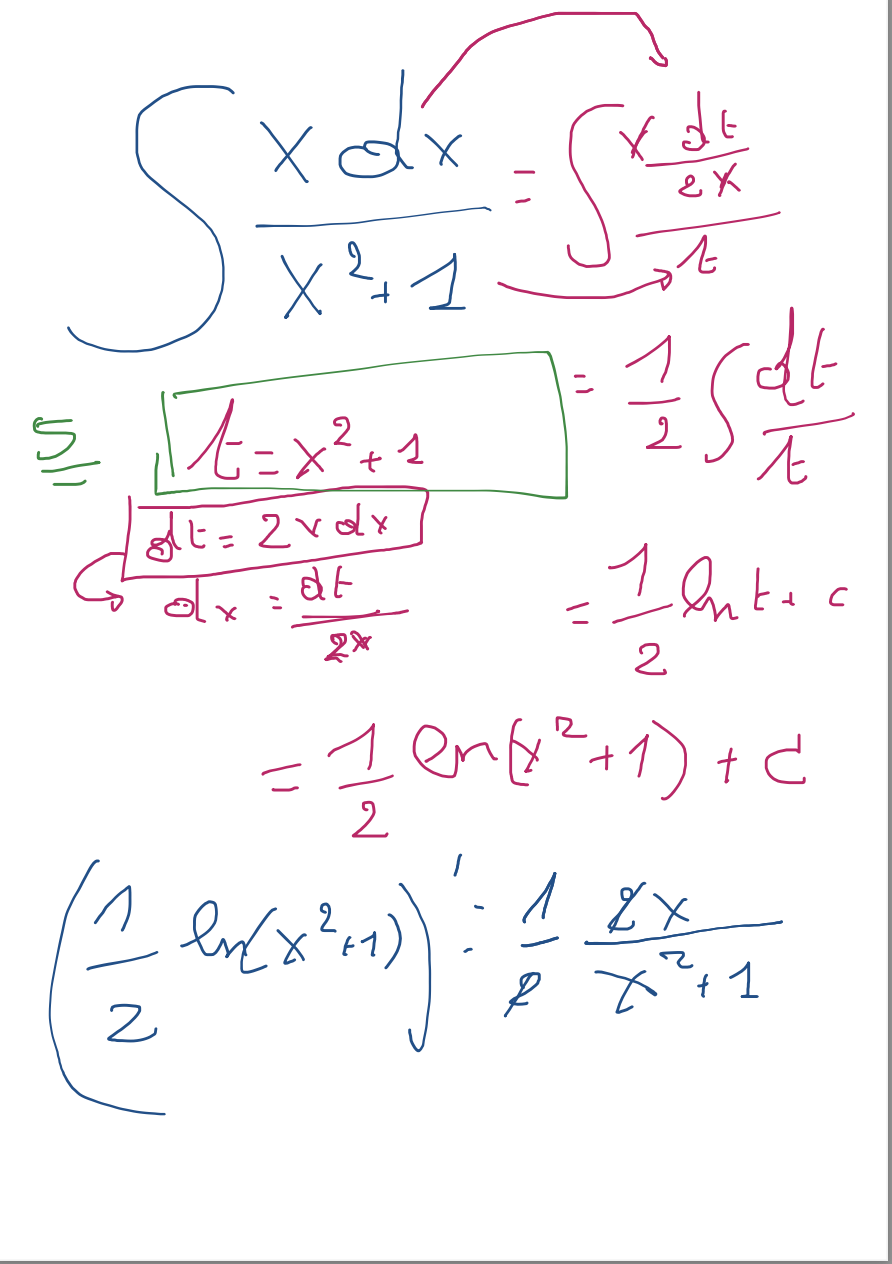 ∫ x dx / (x² + 1) = ∫ (x dt/2x) / t
5 t = x² + 1
= 1/2 ∫ dt/t
dt = 2x dx
dx = dt/2x
= 1/2 ln t + c
= 1/2 ln(x² + 1) + c
(1/2 ln(x² + 1))' = 1/2 2x/(x² + 1)